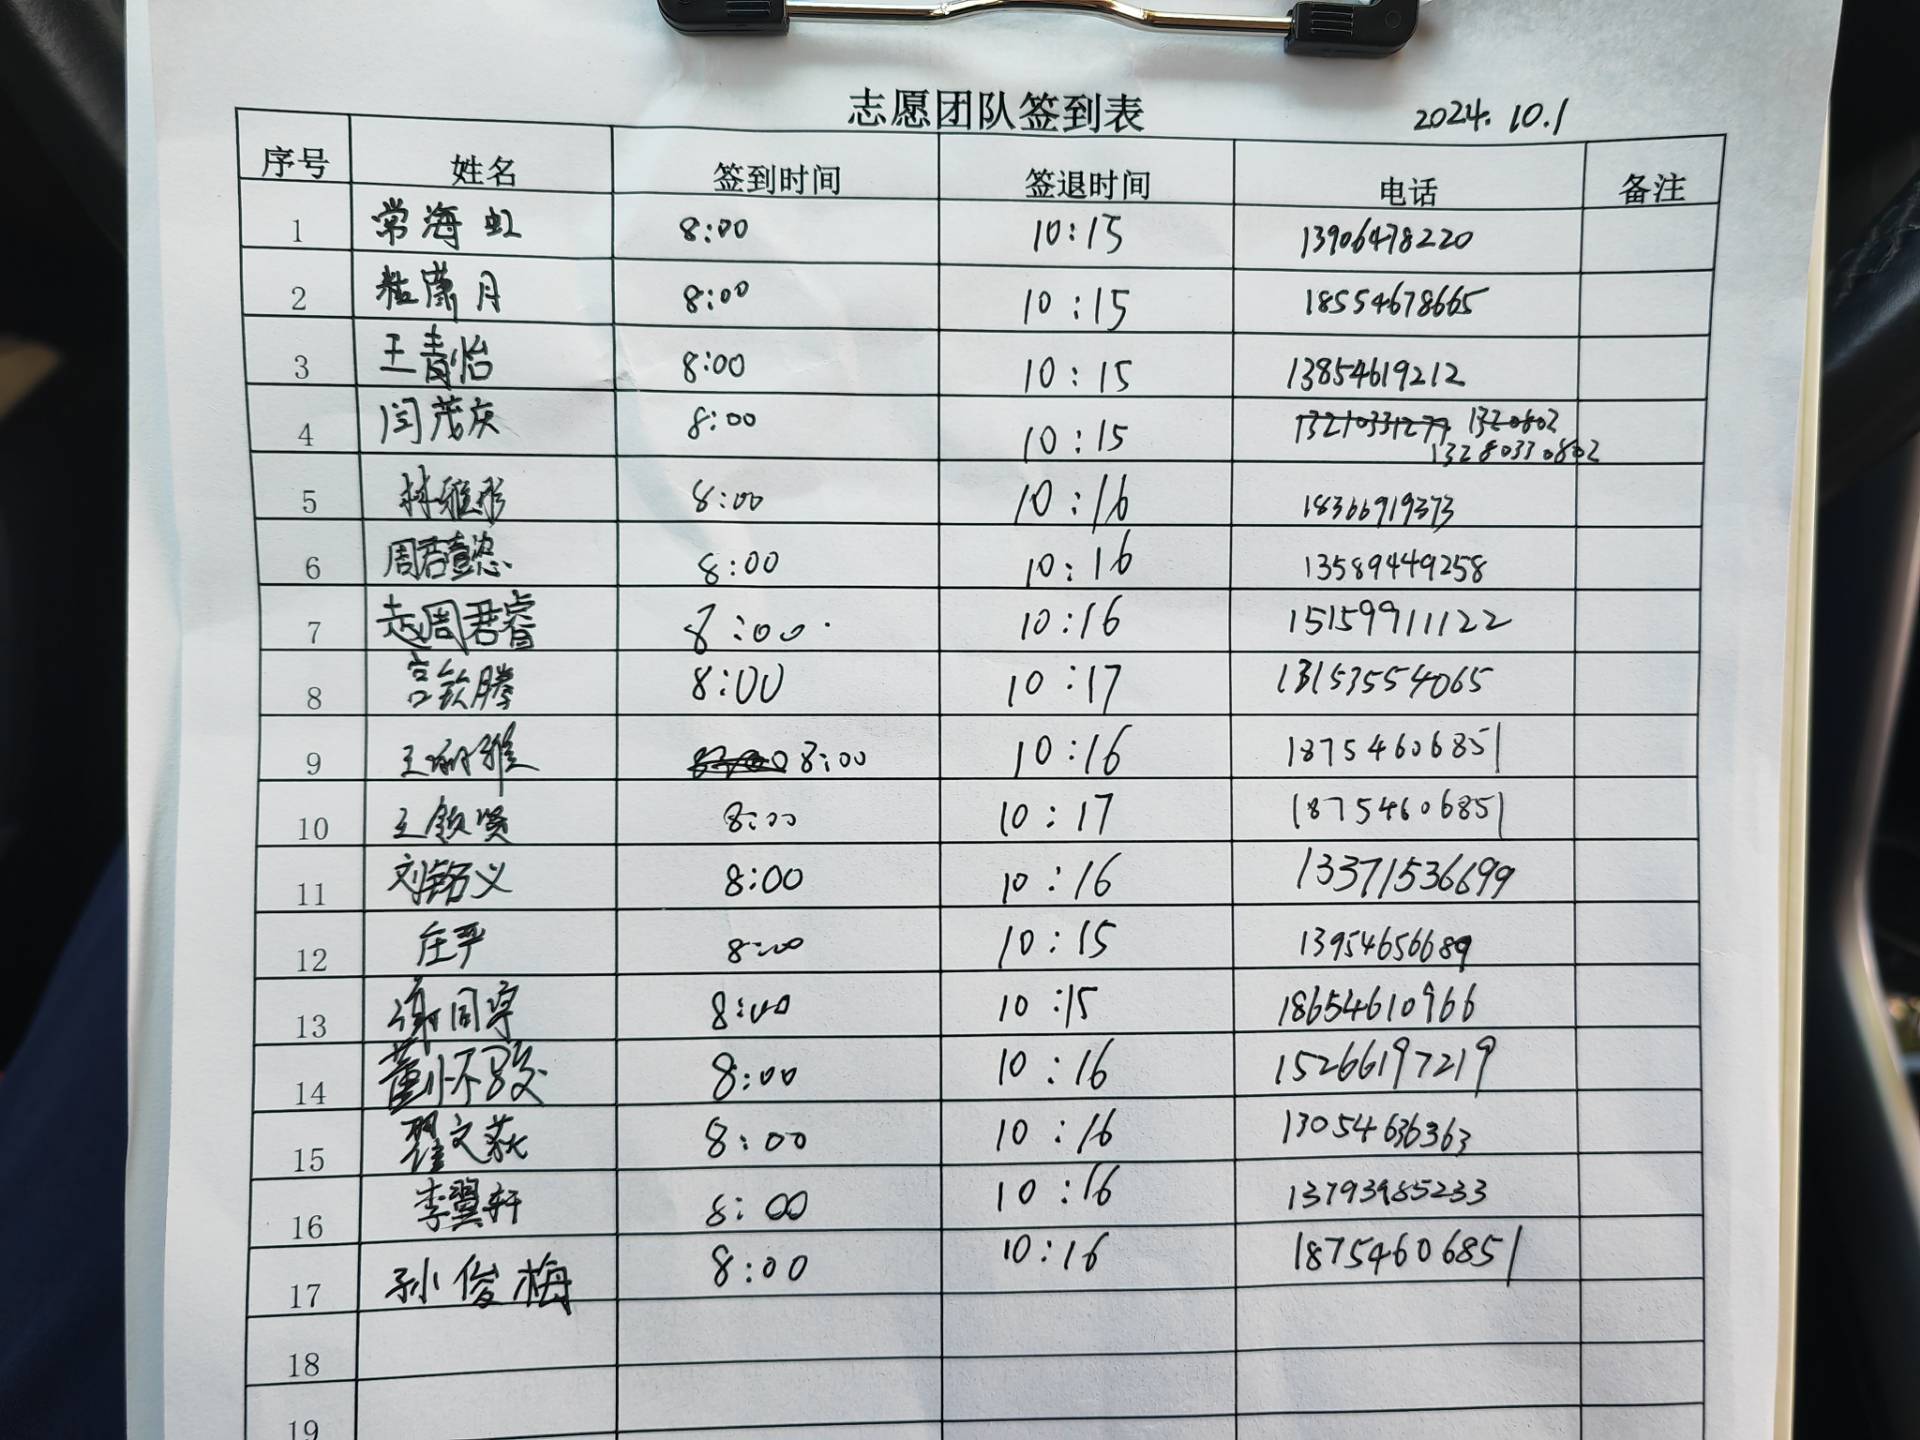 志愿团队签到表 2024.10.1
序号 姓名 签到时间 签退时间 电话 备注
1 常海虹 8:00 10:15 13906478220
2 月 8:00 10:15 18554678665
3 王青怡 8:00 10:15 13854619212
4 闫茂庆 8:00 10:15 13210331277 1320802
13280330802
5 林雅彤 8:00 10:16 18366919373
6 周君懿 8:00 10:16 13589449258
7 赵周君睿 8:00 10:16 15159911122
8 宫钦腾 8:00 10:17 13153554065
9 王雅 8:00 10:16 18754606851
10 王钦贤 8:00 10:17 18754606851
11 刘铭义 8:00 10:16 13371536699
12 庄严 8:00 10:15 13954656689
13 谢同宇 8:00 10:15 18654610966
14 董怀 8:00 10:16 15266197219
15 翟文荻 8:00 10:16 13054636363
16 李翼轩 8:00 10:16 13793985233
17 孙俊梅 8:00 10:16 18754606851
18
19